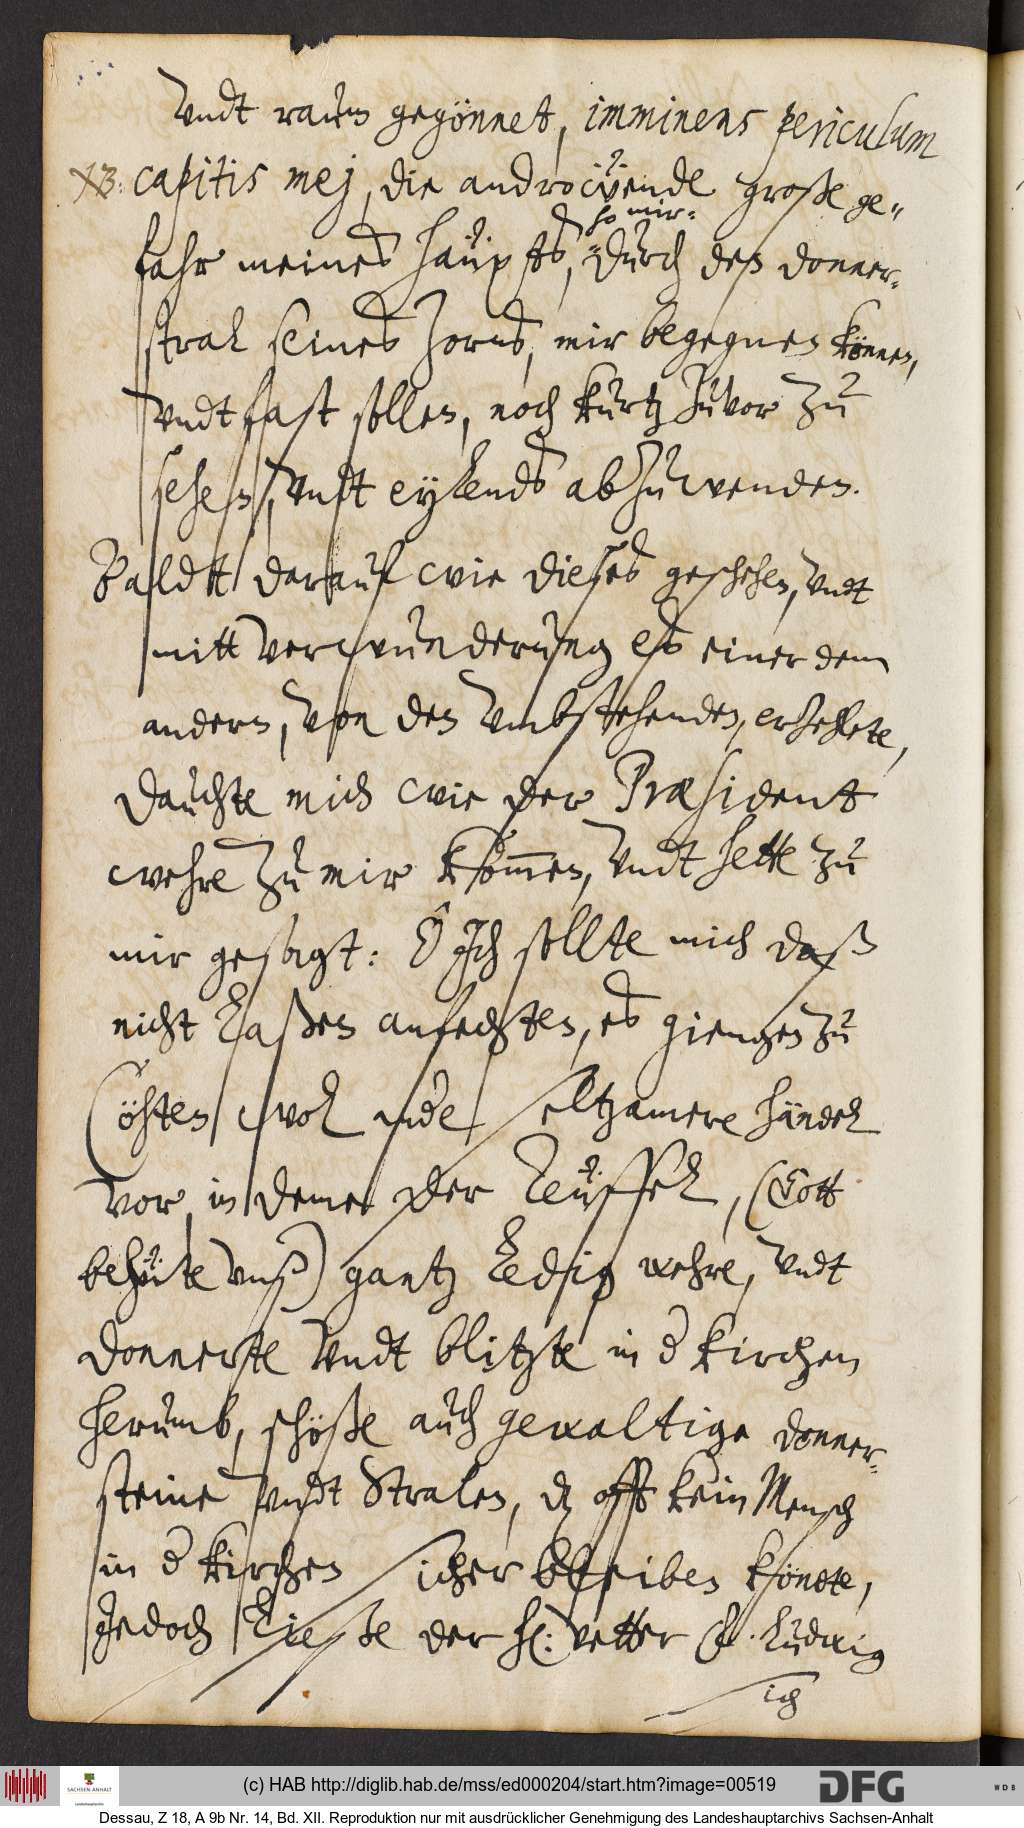 Vndt raum gegönnet, imminens periculum
XB: capitis mej, die androwende große ge-
fahr meines häupts, so mir durch den donner-
stral seines Zorns, mir begegnen können,
vndt fast sollen, noch kurtz zuvor zu
sehen, vndt eylends abzuwenden.
Baldt darauf wie dieses geschehen, vndt
mitt verwunderung es einer dem
andern, von den Vmbstehenden, erzehlete,
dauchte mich wie der Præsident
wehre zu mir kommen, vndt hette zu
mir gesagt: O Ich sollte mich daß
nicht laßen anfechten, es giengen zu
Cöhten wol seltzamere händel
vor, in deme der Teüffel, (Gott
behüte vnß) gantz ledig wehre, vndt
donnerte vndt blitzte in d kirchen
herumb, schöße auch gewaltige donner-
steine vndt Stralen, dz offt kein Mensch
in d kirchen sicher bleiben könte,
Jedoch ließe der H: vetter F. Ludwig
sich
(c) HAB http://diglib.hab.de/mss/ed000204/start.htm?image=00519
SACHSEN-ANHALT
Landeshauptarchiv
DFG
WDB
Dessau, Z 18, A 9b Nr. 14, Bd. XII. Reproduktion nur mit ausdrücklicher Genehmigung des Landeshauptarchivs Sachsen-Anhalt